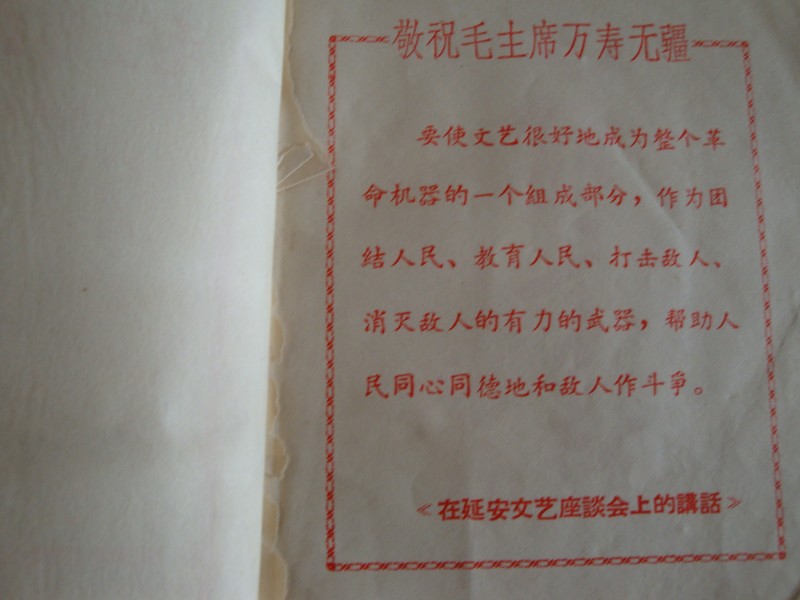 敬祝毛主席万寿无疆
要使文艺很好地成为整个革
命机器的一个組成部分，作为团
结人民、教育人民、打击敌人、
消灭敌人的有力的武器，帮助人
民同心同德地和敌人作斗爭。
《在延安文艺座談会上的講話》